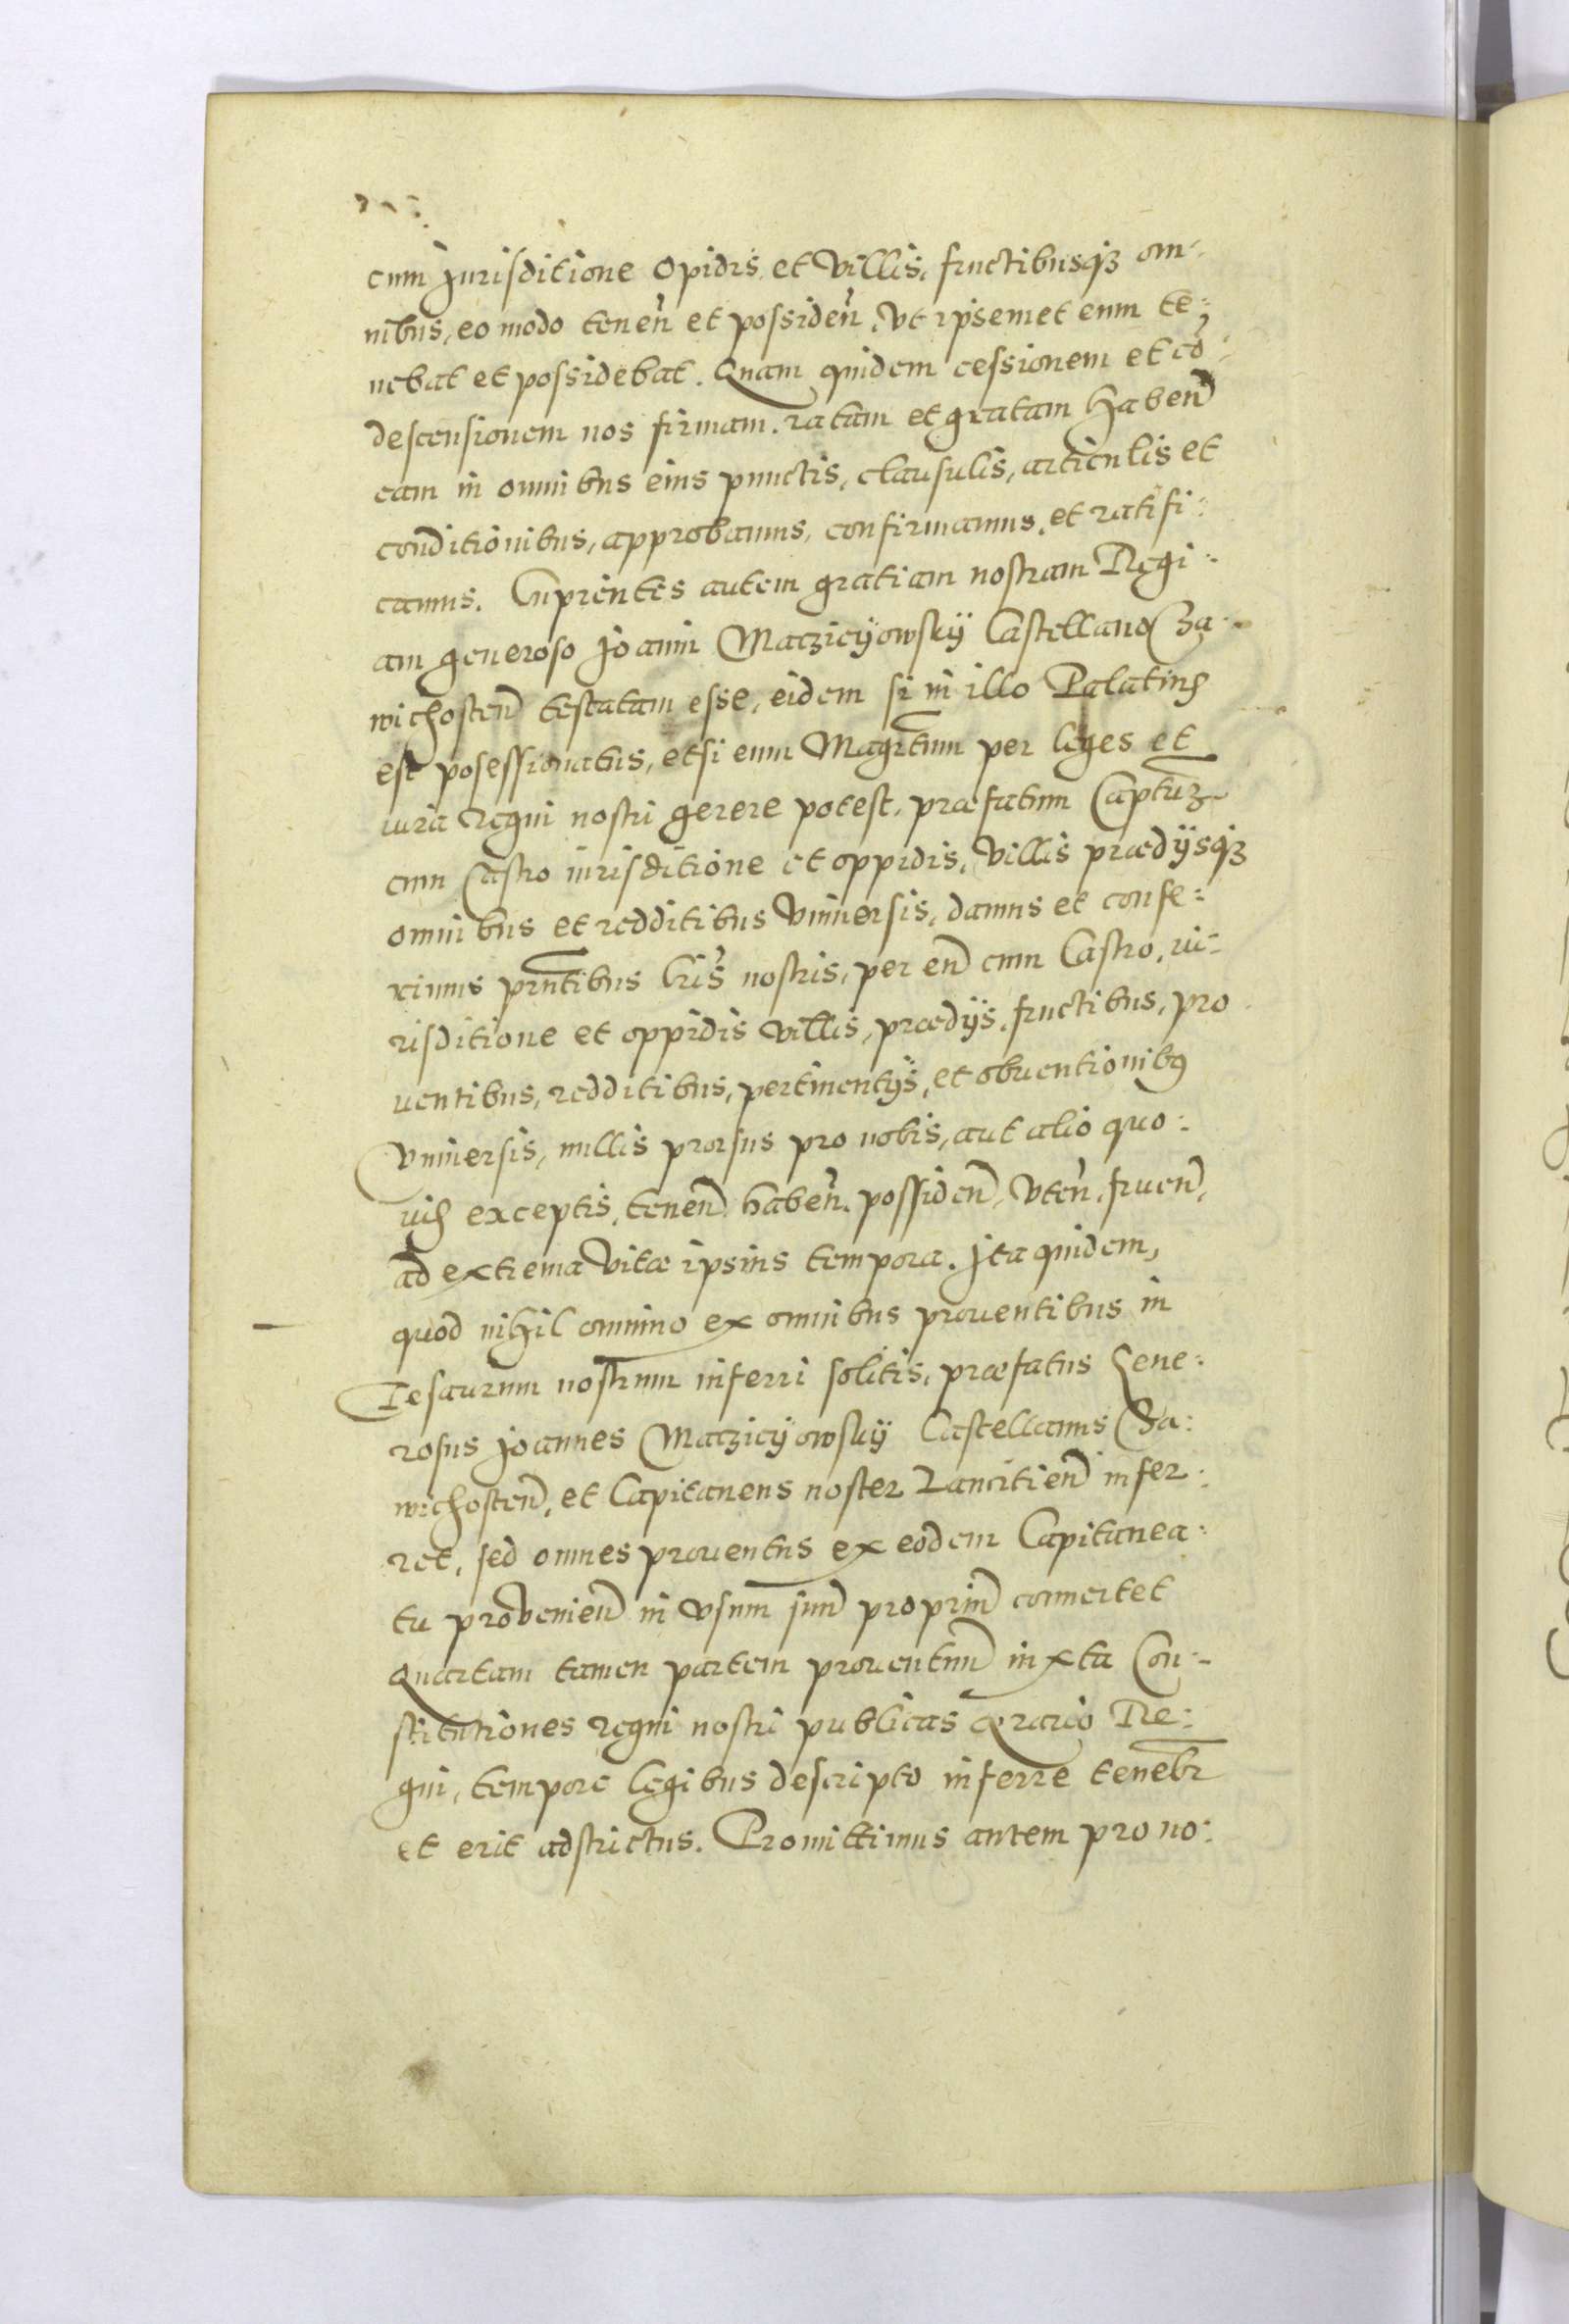 cum Jurisditione Opidis et Villis, fructibusq3 om-
nibus, eo modo tenen et possiden, Vt ipsemet eum te-
nebat et possidebat. Quam quidem cessionem et cō-
descensionem nos firmam, ratam et gratam habend
eam in omnibus eius punctis, clausulis, articulis et
conditionibus, approbamus, confirmamus, et ratifi:
camus. Cupientes autem gratiam nostram Regi:
am generoso Joanni Maczieyowsky Castellano Za:
wichosten testatam esse, eidem si in illo Palatinatu
est posessionatus, et si eum Magrtum per leges et
iura regni nostri gerere potest, præfatum Captum
cum Castro iurisditione et oppidis, Villis prædijsq3
omnibus et redditibus Vniuersis, damus et confe:
rimus prntibus lris nostris, per eund cum Castro, iu-
risditione et oppidis villis, prædijs, fructibus, pro
uentibus, redditibus, pertinentijs, et obuentionibus
Vniuersis, nullis prorsus pro nobis, aut alio quo:
uis exceptis, tenend haben, possidend, Vten, fruend,
ad extrema Vitæ ipsius tempora. Ita quidem,
quod nihil omnino ex omnibus prouentibus in
Tesaurum nostrum inferri solitis, præfatus Gene:
rosus Joannes Maczieyowsky Castellanus Za:
wichosten, et Capitaneus noster infer:
ret, sed omnes prouentus ex eodem Capitanea:
tu provenien in Vsum suu propriu conuertet
Quartam tamen partem prouentuu iuxta Con:
stitutiones regni nostri publicas ærario Re:
gni, tempore legibus descripto inferre tenebr
et erit adstrictus. Promittimus autem pro no: